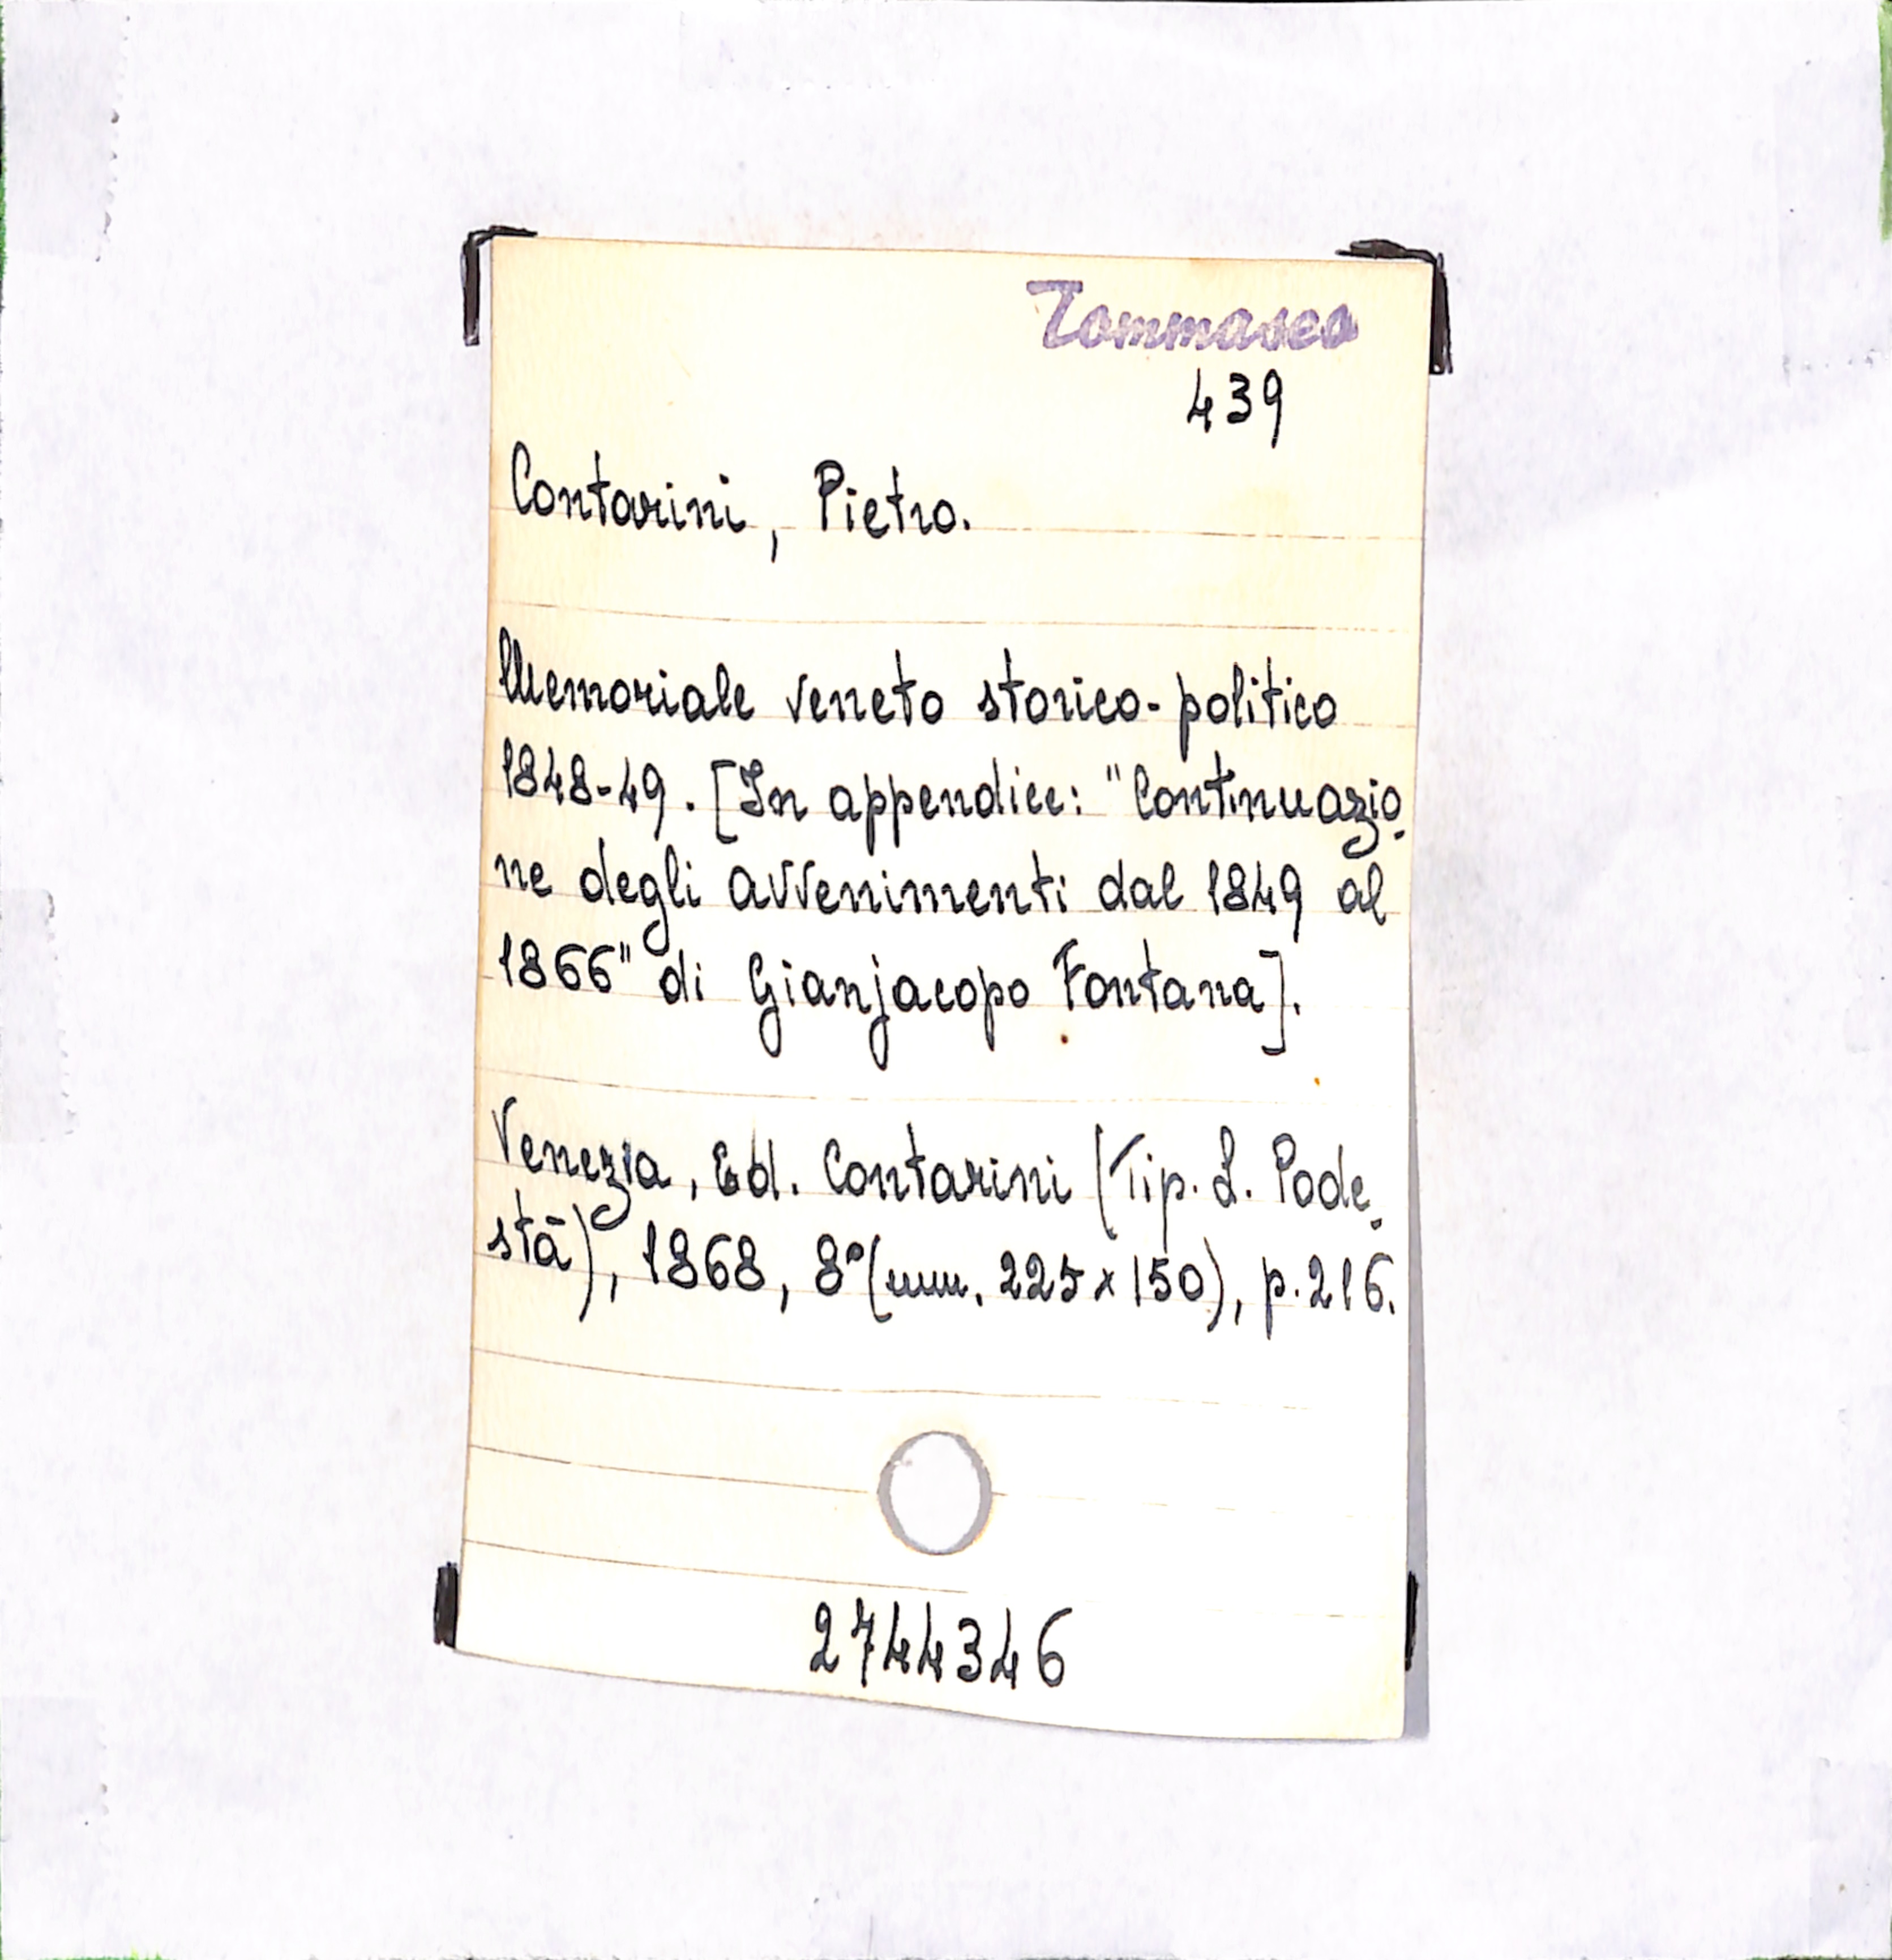 Tommaseo
439
Contarini, Pietro.
Memoriale veneto storico-politico
1848-49. [In appendice: "Continuazio-
ne degli avvenimenti dal 1849 al
1866" di Gianjacopo Fontana].
Venezia, Ed. Contarini (Tip. L. Pode-
stà), 1868, 8° (mm. 225 x 150), p. 216.
2744346